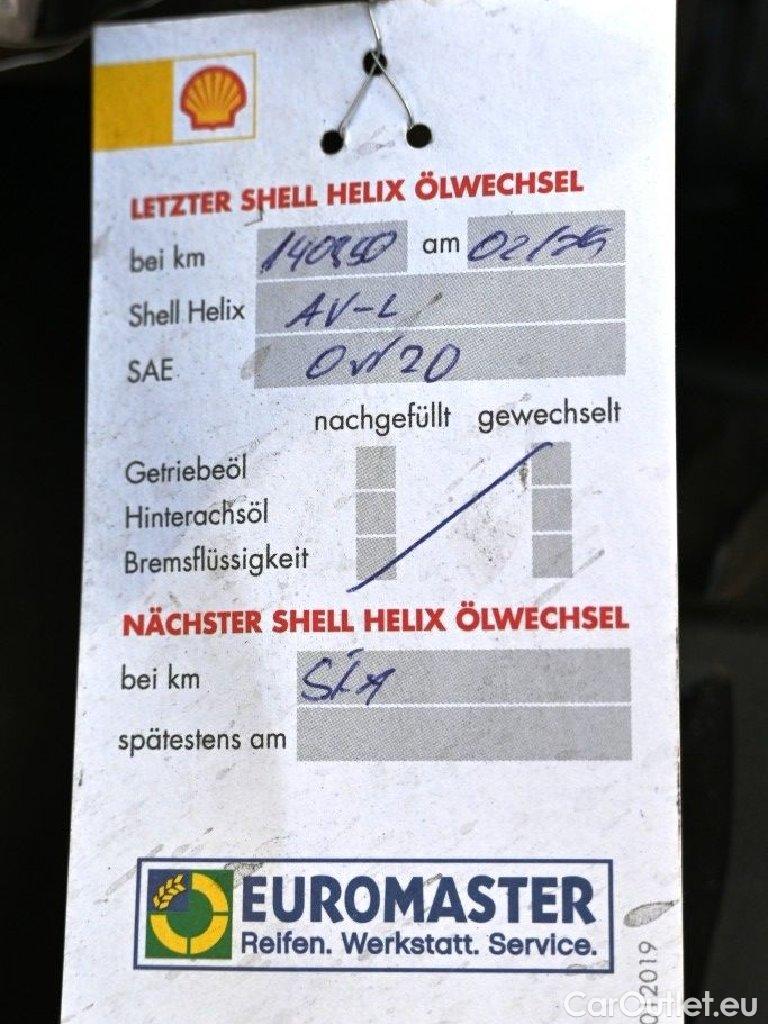 LETZTER SHELL HELIX ÖLWECHSEL
bei km 140950 am 02/25
Shell Helix AV-L
SAE 0W20
nachgefüllt gewechselt
Getriebeöl
Hinterachsöl
Bremsflüssigkeit
NÄCHSTER SHELL HELIX ÖLWECHSEL
bei km SIA
spätestens am
EUROMASTER
Reifen. Werkstatt. Service.
2019
CarOutlet.eu